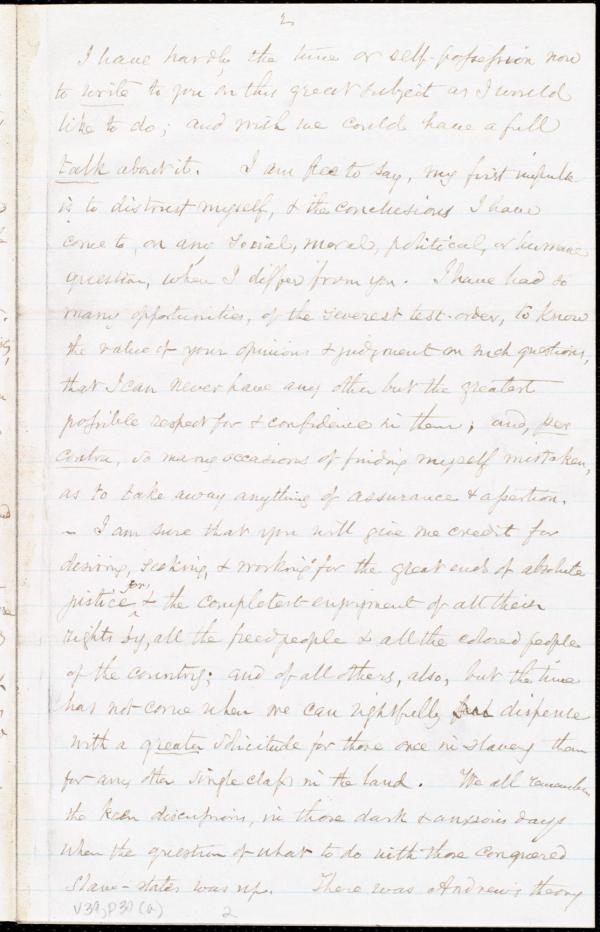 2
I have hardly the time or self-possession now
to write to you on this great subject as I would
like to do; and wish we could have a full
talk about it. I am free to say, my first impulse
is to distrust myself, & the conclusions I have
come to, on any social, moral, political, or humane
question, when I differ from you. I have had so
many opportunities, of the severest test-order, to know
the value of your opinions & judgment on such questions,
that I can never have any other but the greatest
possible respect for & confidence in them; and, per
contra, so many occasions of finding myself mistaken,
as to take away anything of assurance & assertion.
– I am sure that you will give me credit for
desiring, seeking, & working for the great ends of absolute
justice for, & the completest enjoyment of all their
rights by, all the freedpeople & all the colored people
of the country; and of all others, also, but the time
has not come when we can rightfully dispense
with a greater solicitude for those once in slavery than
for any other single class in the land. We all remember
the keen discussions, in those dark & anxious days
when the question of what to do with those conquered
Slave-states was up. There was Andrew's theory
V39, P30 (a) 2